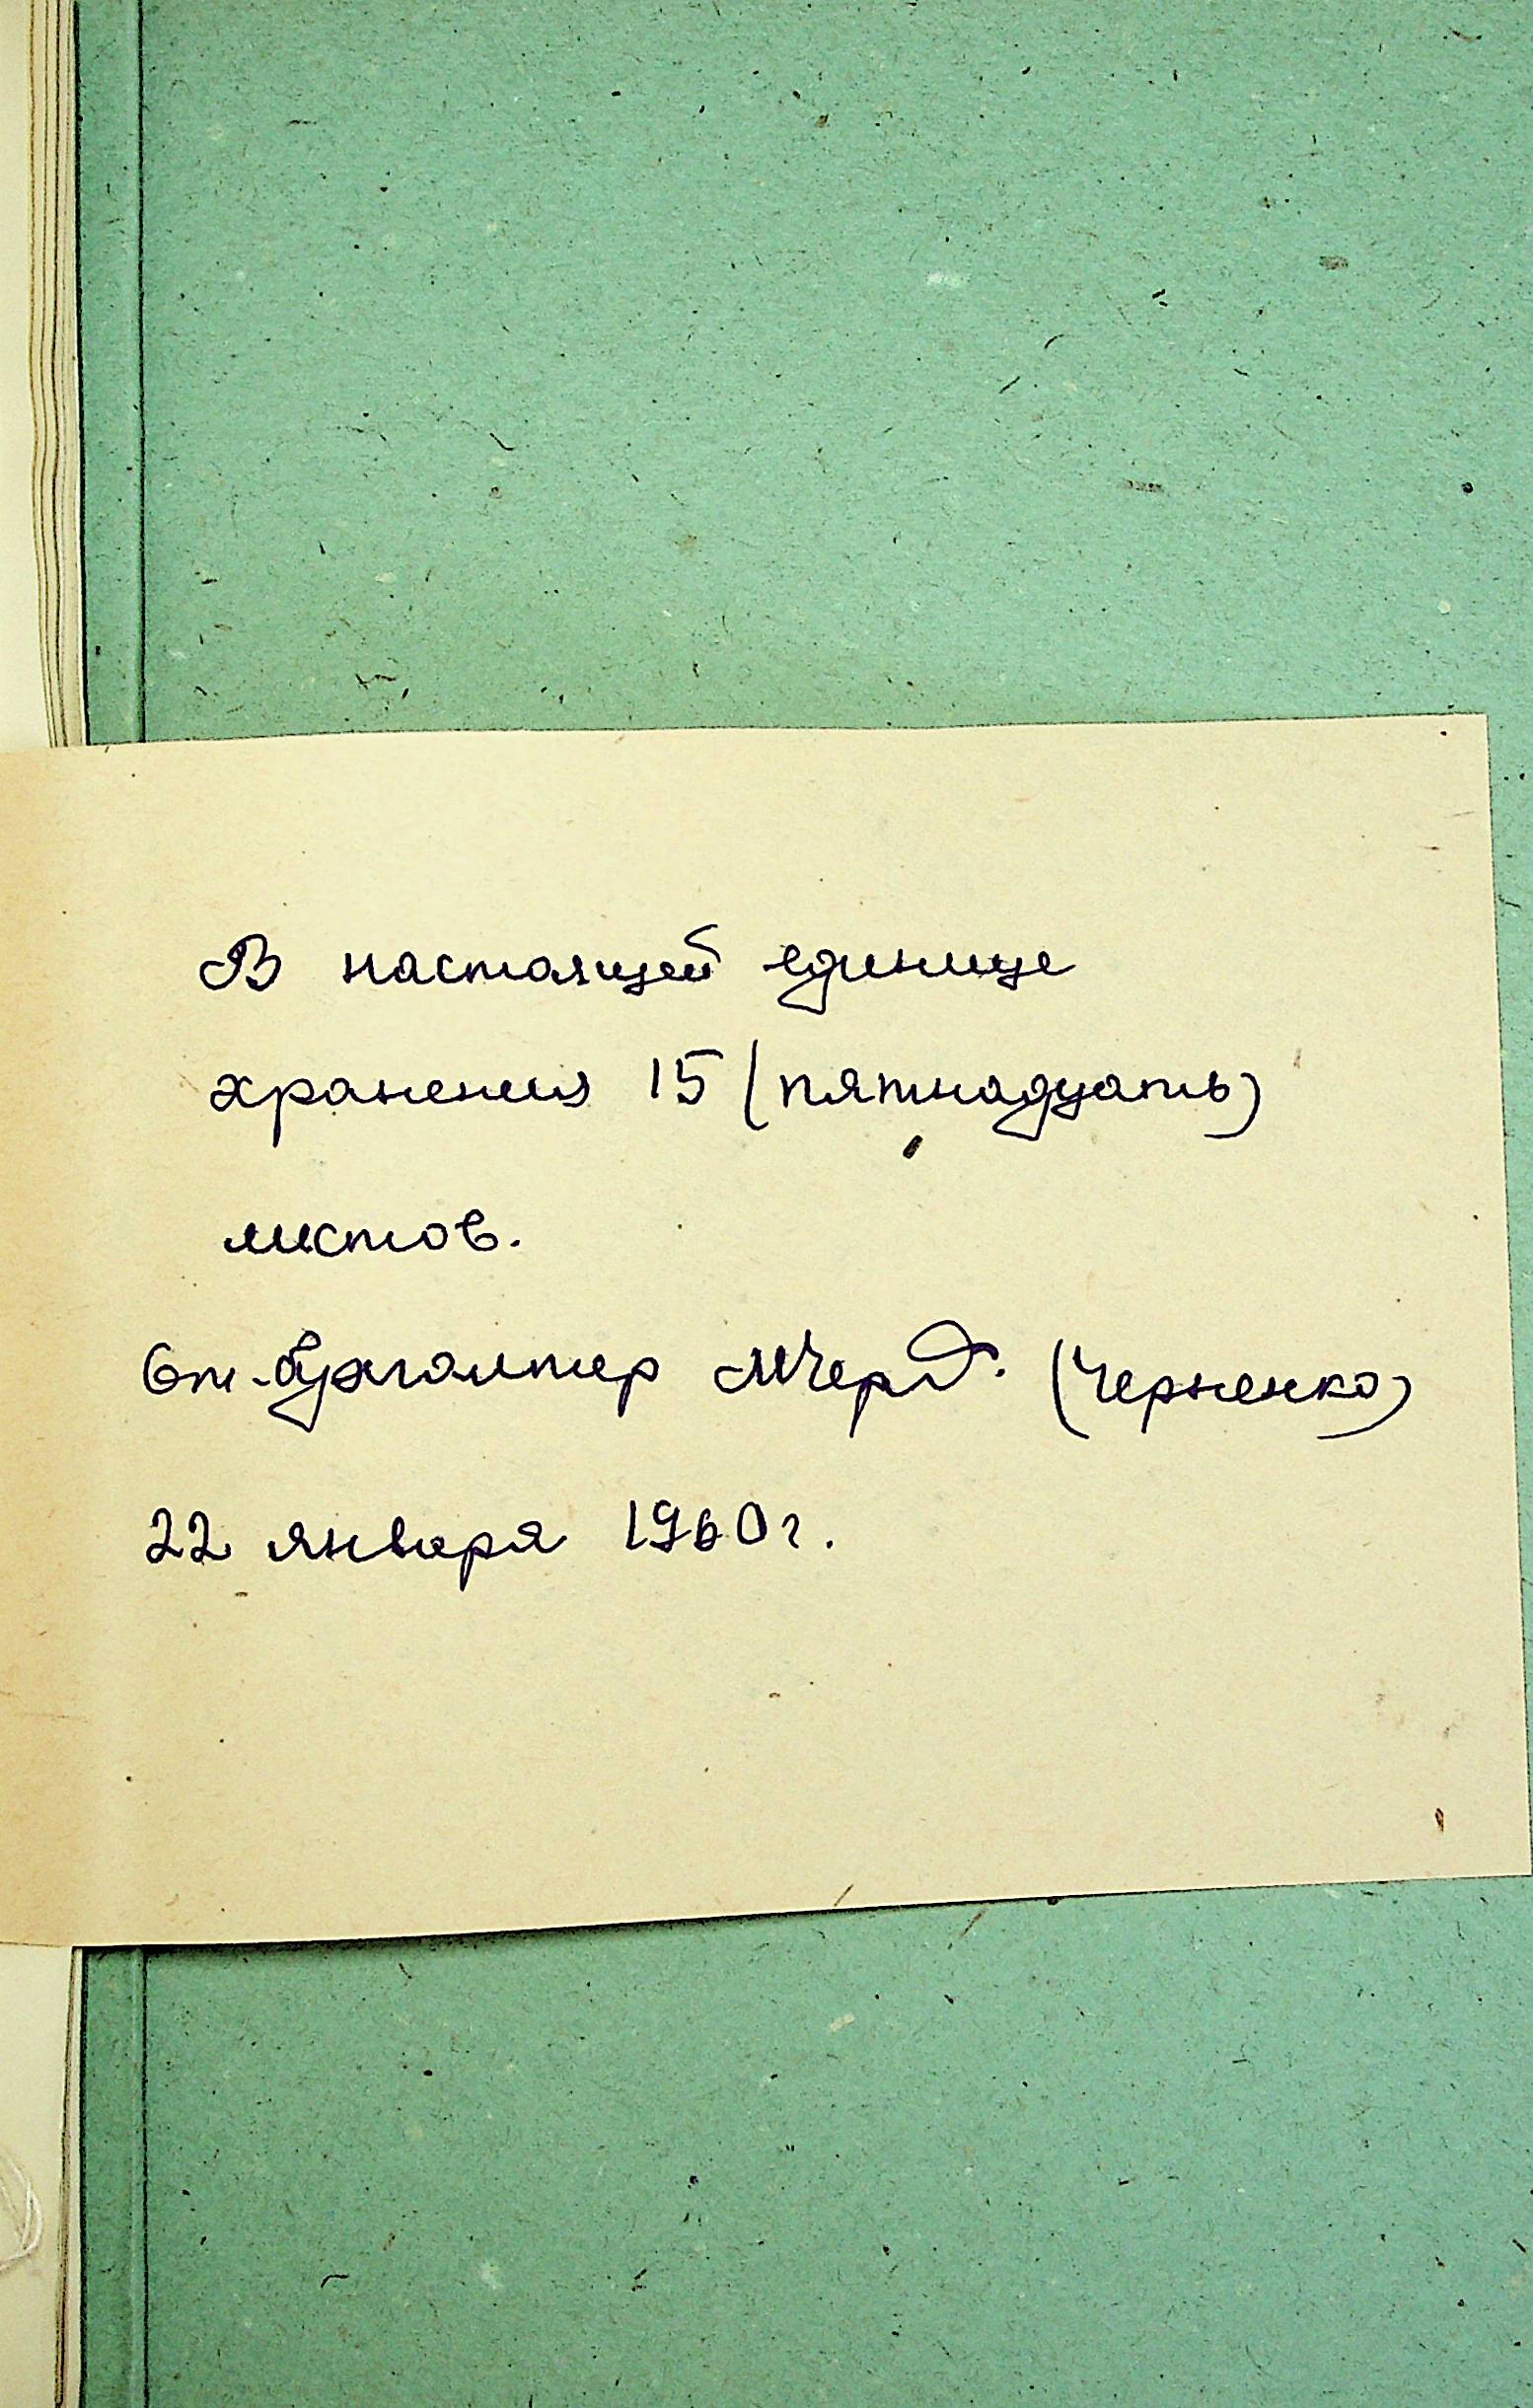 В настоящей единице
хранения 15 (пятнадцать)
листов.
Ст. бухгалтер МЧер (Черненко)
22 января 1960 г.